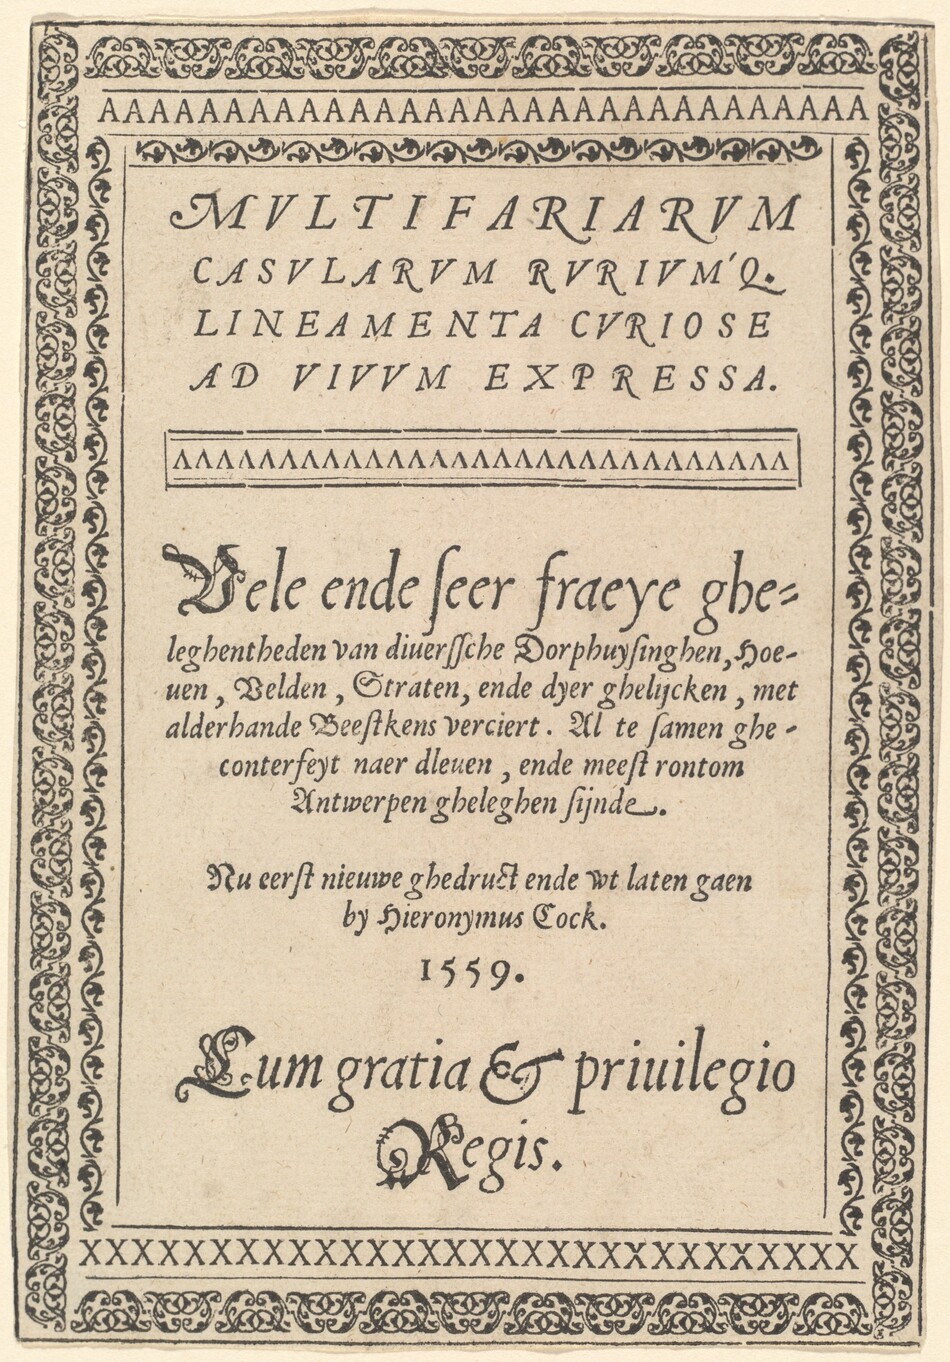 AAAAAAAAAAAAAAAAAAAAAAAAAAAAAAA
MVLTIFARIARVM
CASVLARVM RVRIVM'Q.
LINEAMENTA CVRIOSE
AD VIVVM EXPRESSA.
ΛΛΛΛΛΛΛΛΛΛΛΛΛΛΛΛΛΛΛΛΛΛΛΛΛΛΛΛΛ
Vele ende ſeer fraeye ghe⸗
leghentheden van diuerſſche Dorphuyſinghen, Hoe-
uen, Velden, Straten, ende dyer ghelijcken, met
alderhande Beeſtkens verciert. Al te ſamen ghe-
conterfeyt naer dleuen, ende meeſt rontom
Antwerpen gheleghen ſijnde.
Nu eerſt nieuwe ghedruct ende wt laten gaen
by Hieronymus Cock.
1559.
Cum gratia & priuilegio
Regis.
XXXXXXXXXXXXXXXXXXXXXXXXXXXXXX